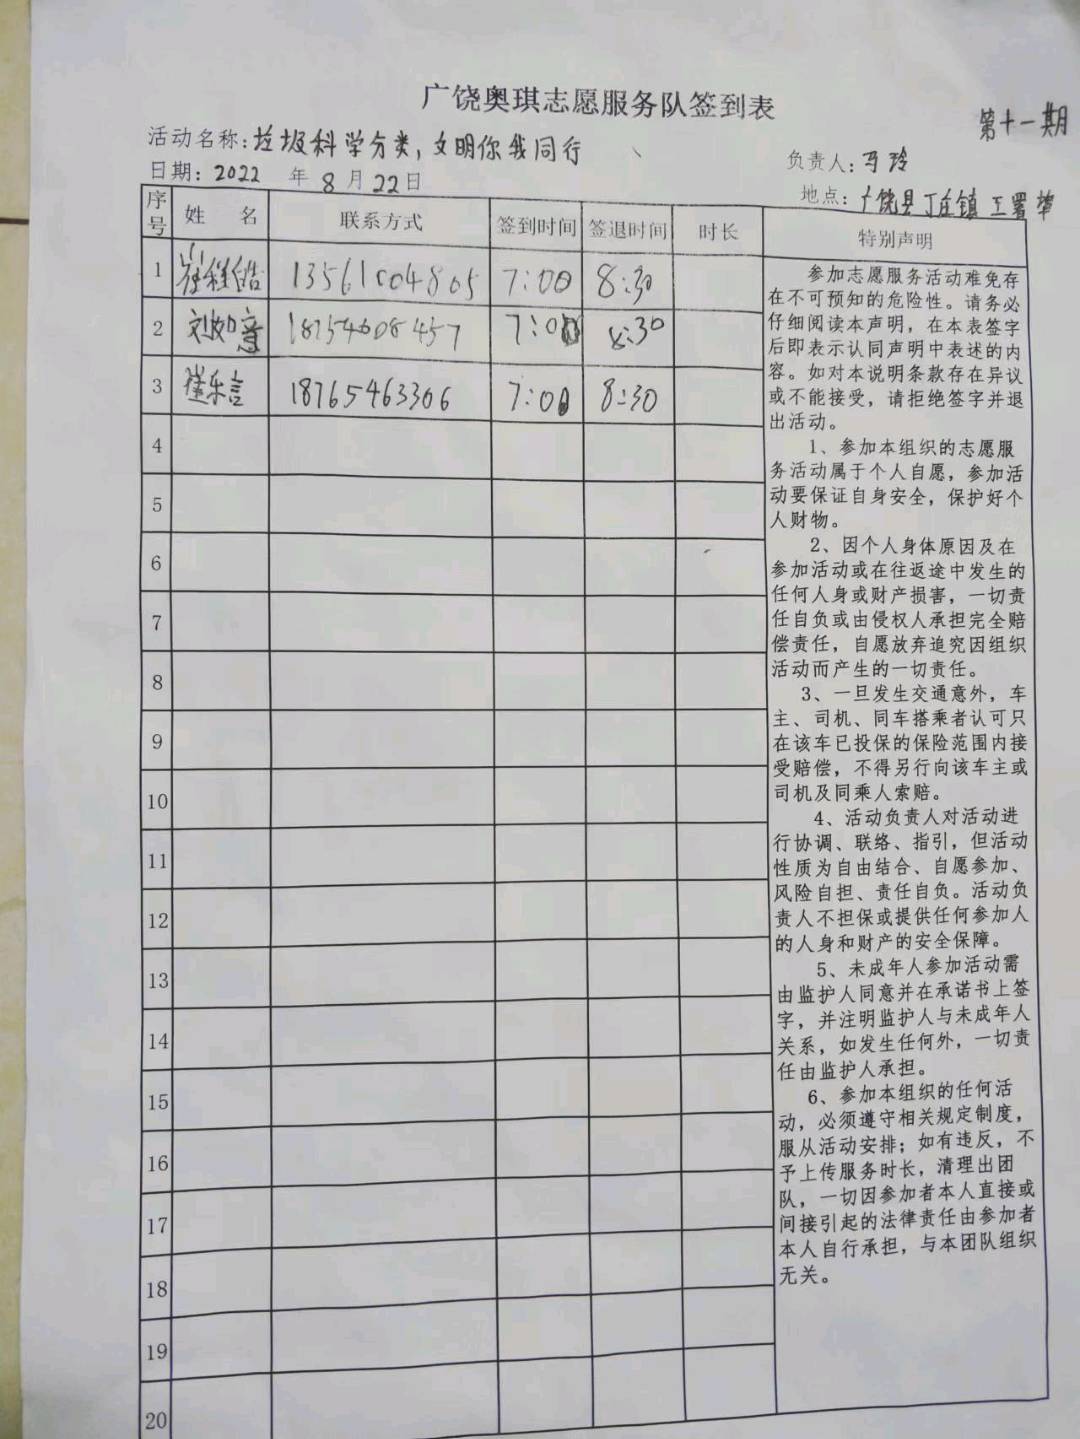 广饶奥琪志愿服务队签到表
第十一期
活动名称:垃圾科学分类,文明你我同行
负责人:马玲
日期:2022 年 8 月 22 日
地点:广饶县丁庄镇王署埠
序号 姓 名 联系方式 签到时间 签退时间 时长 特别声明
1 崔程皓 13561004805 7:00 8:30
2 刘如意 18754608457 7:00 8:30
3 崔乐言 18765463306 7:00 8:30
4
5
6
7
8
9
10
11
12
13
14
15
16
17
18
19
20
参加志愿服务活动难免存
在不可预知的危险性。请务必
仔细阅读本声明，在本表签字
后即表示认同声明中表述的内
容。如对本说明条款存在异议
或不能接受，请拒绝签字并退
出活动。
1、参加本组织的志愿服
务活动属于个人自愿，参加活
动要保证自身安全，保护好个
人财物。
2、因个人身体原因及在
参加活动或在往返途中发生的
任何人身或财产损害，一切责
任自负或由侵权人承担完全赔
偿责任，自愿放弃追究因组织
活动而产生的一切责任。
3、一旦发生交通意外，车
主、司机、同车搭乘者认可只
在该车已投保的保险范围内接
受赔偿，不得另行向该车主或
司机及同乘人索赔。
4、活动负责人对活动进
行协调、联络、指引，但活动
性质为自由结合、自愿参加、
风险自担、责任自负。活动负
责人不担保或提供任何参加人
的人身和财产的安全保障。
5、未成年人参加活动需
由监护人同意并在承诺书上签
字，并注明监护人与未成年人
关系，如发生任何外，一切责
任由监护人承担。
6、参加本组织的任何活
动，必须遵守相关规定制度，
服从活动安排；如有违反，不
予上传服务时长，清理出团
队，一切因参加者本人直接或
间接引起的法律责任由参加者
本人自行承担，与本团队组织
无关。